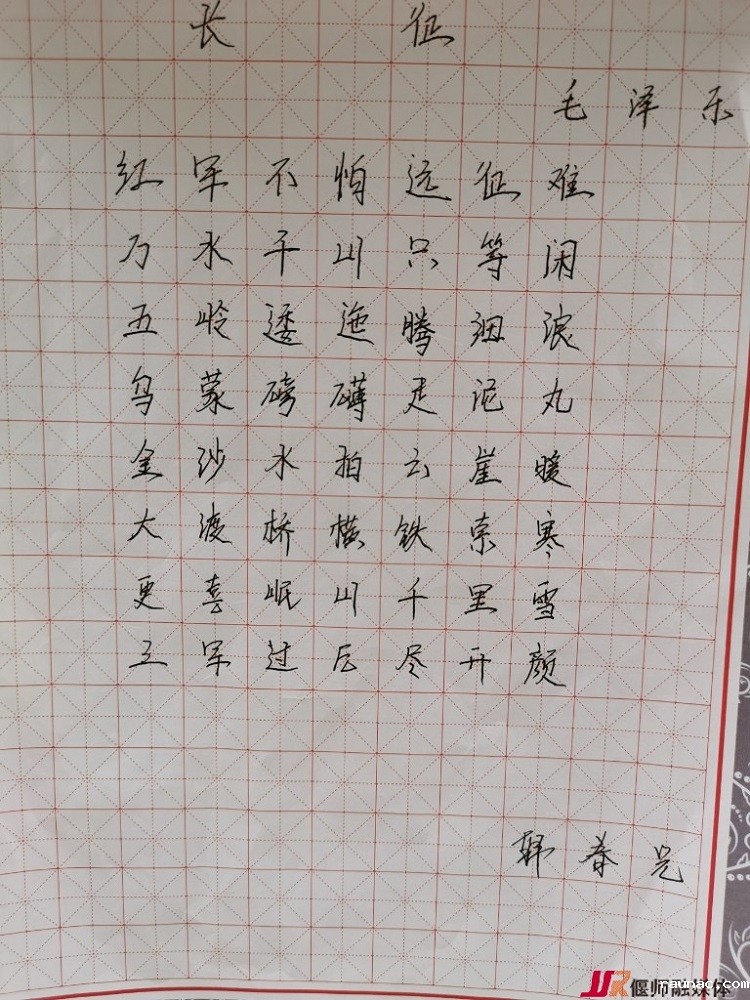 长征
毛泽东
红军不怕远征难
万水千山只等闲
五岭逶迤腾细浪
乌蒙磅礴走泥丸
金沙水拍云崖暖
大渡桥横铁索寒
更喜岷山千里雪
三军过后尽开颜
韩春
偃师融媒体
raunao.com